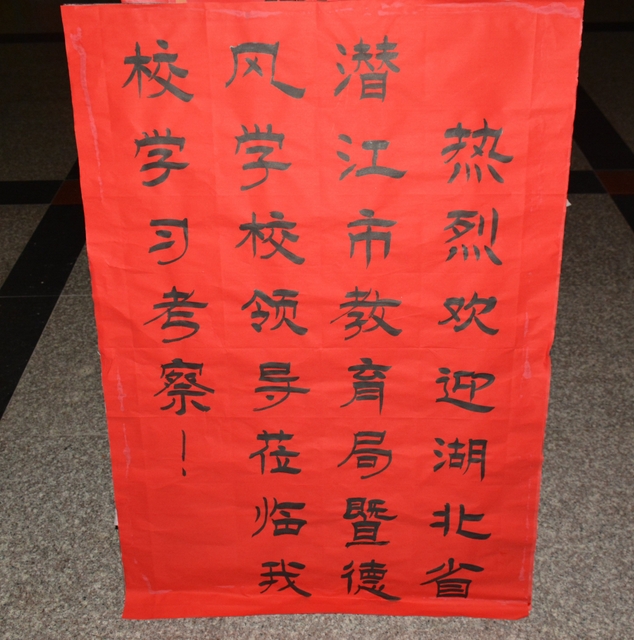 热烈欢迎湖北省
潜江市教育局暨德
风学校领导莅临我
校学习考察！